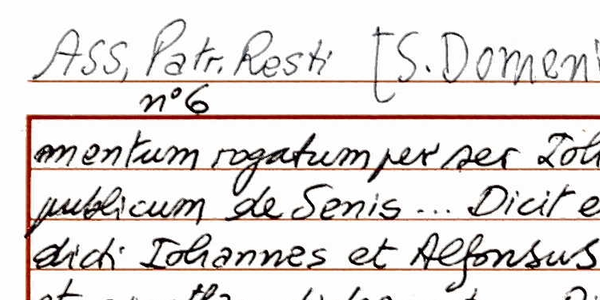 Ass. Patr. Resti [S. Domeni
n° 6
mentum rogatum per ser Ioh
publicum de Senis ... Dicit e
dicti Iohannes et Alfonsus
et